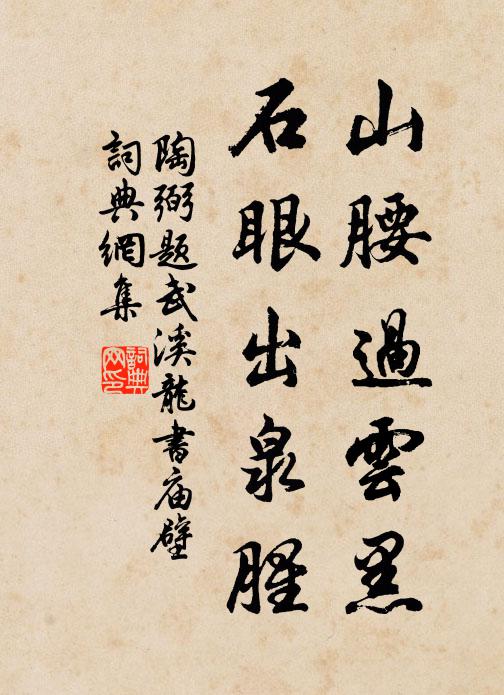 山腰過雲黑
石眼出泉腥
陶弼题武溪龍書庙壁
詞典網集
詞典網印